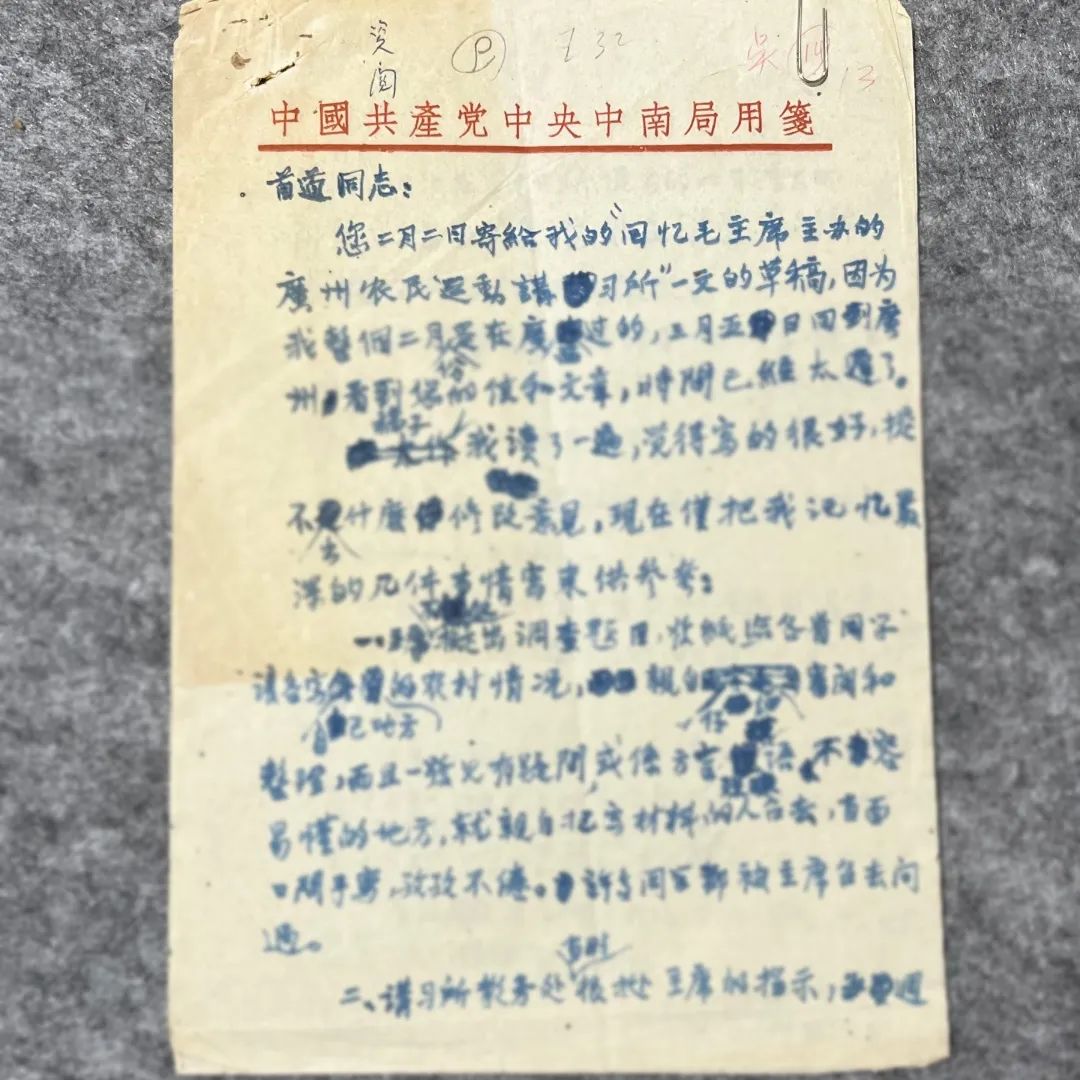 资
阅
P
132
吴
13
中國共產党中央中南局用箋
首道同志：
您二月二日寄給我的“回忆毛主席主办的
廣州农民运動講习所”一文的草稿，因为
我整個二月是在度过的，三月五日回到廣
份
州，看到您的信和文章，時間已經太遲了。
稿子
我读了一遍，觉得写的很好，提
不什麼修改意見，現在僅把我记忆最
出
深的几件事情写来供参考：
一、提出调查题目，
请各写的农村情况，親自審阅和
自己地方
仔
整理，而且一發見有疑問，或係方言語，不容
易懂的地方，就親自把写材料的人召去，当面
口問手寫，孜孜不倦。許多同志都被主席召去问
过。
二、讲习所教务处根据主席的指示，週